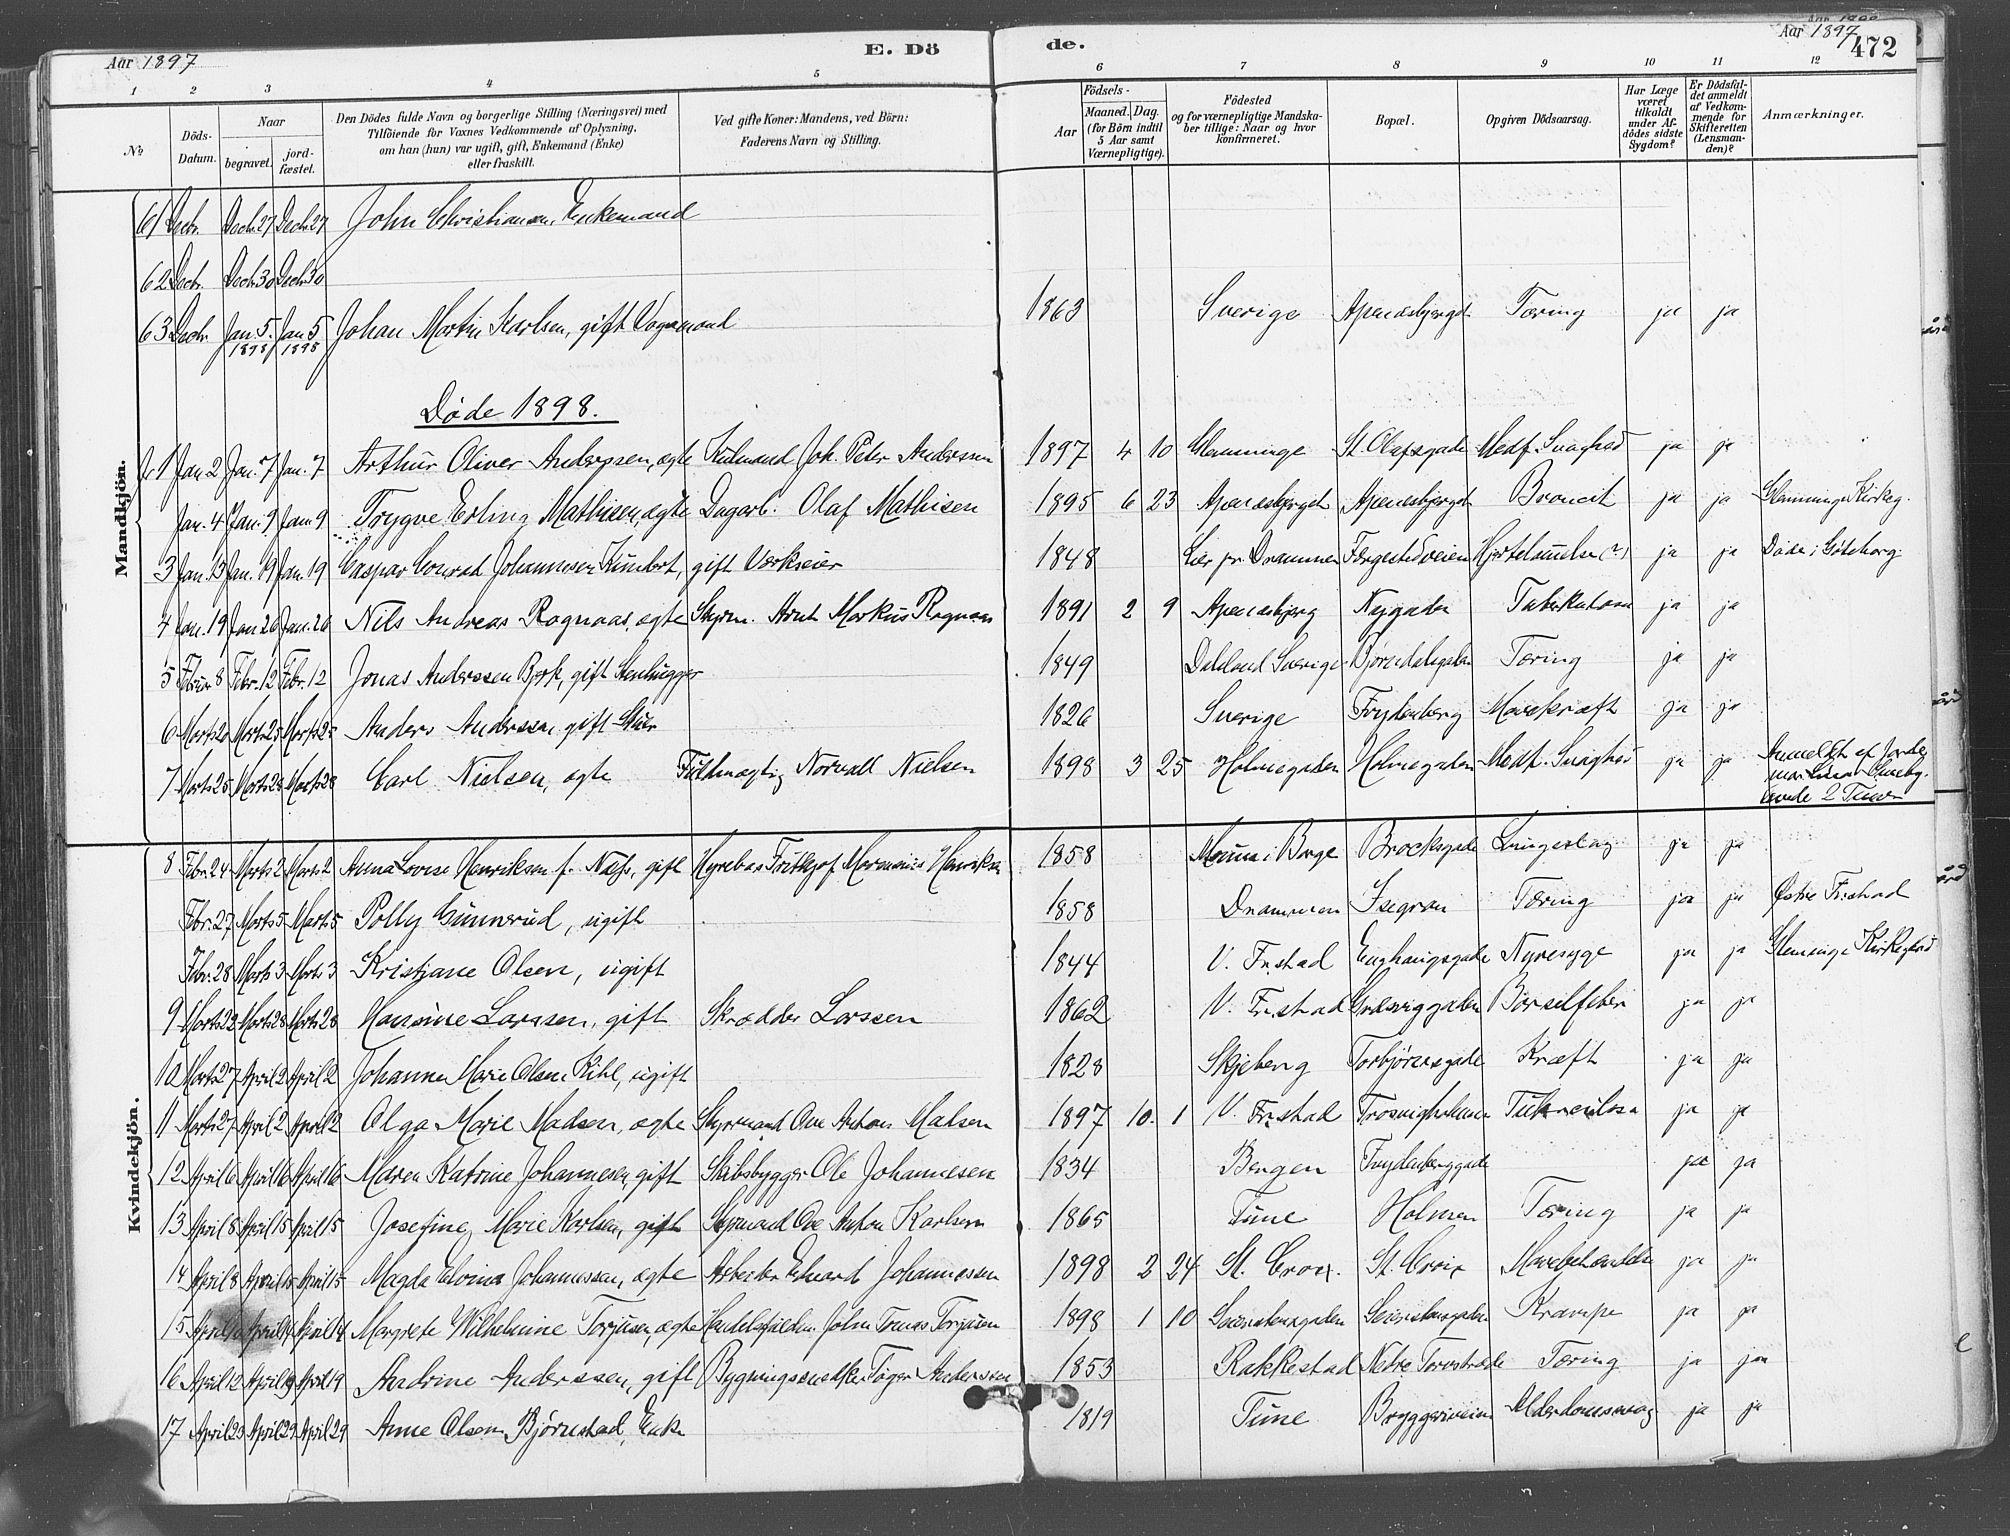 Aar 1897 E. Dö de. Aar 1897 472
1 2 3 4 5 6 7 8 9 10 11 12
№
Döds-Datum.
Naar
begravet.
jordfæstet.
Den Dödes fulde Navn og borgerlige Stilling (Næringsvei) med
Tilföiende for Voxnes Vedkommende af Oplysning,
om han (hun) var ugift, gift, Enkemand (Enke)
eller fraskilt.
Ved gifte Koner: Mandens, ved Börn:
Faderens Navn og Stilling.
Födsels-
Aar
Maaned. Dag.
(for Börn indtil
5 Aar samt
Værnepligtige).
Födested
og for værnepligtige Mandska-
ber tillige: Naar og hvor
konfirmeret.
Bopæl.
Opgiven Dödsaarsag.
Har Læge
været
tilkaldt
under Af-
dödes sidste
Sygdom?
Er Dödsfal-
det anmeldt
af Vedkom-
mende for
Skifteretten
(Lensman-
den)?
Anmærkninger.
Mandkjön.
61 Decbr. Decbr. 27 Decbr. 27 John Christiansen, Enkemand
62 Decbr. Decbr. 30 Decbr. 30
63 Decbr. Jan. 5. 1898 Jan. 5 1898 Johan Martin Karlsen, gift 1863 Sverige Apenæsbjerget Tæring ja ja
Døde 1898.
1 Jan. 2 Jan. 7 Jan. 7 Arthur Oliver Anderssen, ægte Joh. Peter Anderssen 1897 4 10 Glemminge St. Olafsgade Medf. Svaghed ja ja
Jan. 4 Jan. 9 Jan. 9 Trygve Erling Mathisen, ægte Dagarb. Olaf Mathisen 1895 6 23 Apenæsbjerget Apenæsbjerget Broncit ja ja Glemminge Kirkeg.
3 Jan. 13 Jan. 19 Jan. 19 Caspar Conrad Johannesen, gift Værkseier 1848 Lier pr. Drammen Hjertelammelse (?) ja ja Døde i Göteborg
4 Jan. 19 Jan. 26 Jan. 26 Nils Andreas Rognaas, ægte Styrm. Arnt Markus Rognaas 1891 2 9 Apenæsbjerg Nygaden Tuberkulose ja ja
5 Februar 8 Febr. 12 Febr. 12 Jonas Anderssen Bjørk, gift Stenhugger 1849 Dalsland Sverige Bjørndalsgaden Tæring ja ja
6 Marts 20 Marts 25 Marts 25 Anders Anderssen gift 1826 Sverige Frydenberg Mavekræft ja ja
7 Marts 25 Marts 28 Marts 28 Carl Nielsen, ægte Fuldmægtig Norvall Nielsen 1898 3 25 Holmegaden Holmegaden Medf. Svaghed ja ja Anmeldt af Jorde
2 Timer
Kvindekjön.
8 Febr. 24 Marts 2 Marts 2 Anna Lovise Henriksen f. Næss, gift Hyrebas Frithjof Hermanius Henriksen 1858 Moum i Borge Brocksgade ja ja
Febr. 27 Marts 5 Marts 5 Polly Gunnerud, ugift 1858 Drammen Isegran Tæring ja ja Østre Fr.stad
Febr. 28 Marts 3 Marts 3 Kristjane Olsen, ugift 1844 V. Fr.stad Enghaugsgade Nyresyge ja ja Glemminge Kirkegaard
9 Marts 22 Marts 28 Marts 28 Hansine Larssen, gift Skrædder Larssen 1862 V. Fr.stad Gudeviggaden Barselfeber ja ja
10 Marts 27 April 2 April 2 Johanne Marie Olsen Kihl, ugift 1828 Skjeberg Torbjørnsgade Kræft ja ja
11 Marts 27 April 2 April 2 Olga Marie Madsen, ægte Styrmand Ove Antons Madsen 1897 10 1 V. Fr.stad Trosvigholmen Tuberculose ja ja
12 April 6 April 16 April 16 Maren Katrine Johannesen, gift Skibsbygger Ole Johannesen 1834 Bergen Frydenberggade ja ja
13 April 8 April 15 April 15 Josefine Marie Karlsen, gift Styrmand Ove Anton Karlsen 1865 Tune Holmen Tæring ja ja
14 April 8 April 15 April 15 Magda Elvine Johannessen, ægte Arbeider Edvard Johannessen 1898 2 24 St. Croix. St. Croix ja ja
15 April April 14 April 14 Margrete Wilhelmine Torjusen, ægte John Tomas Torjusen 1898 1 10 Krampe ja ja
16 April 12 April 19 April 19 Andrine Anderssen, gift Anderssen 1853 Rakkestad Nedre Torvstræde Tæring ja ja
17 April 23 April 29 April 29 Anne Olsen Bjørnstad, Enke 1819 Tune Bryggeriveien Alderdomssvag ja ja